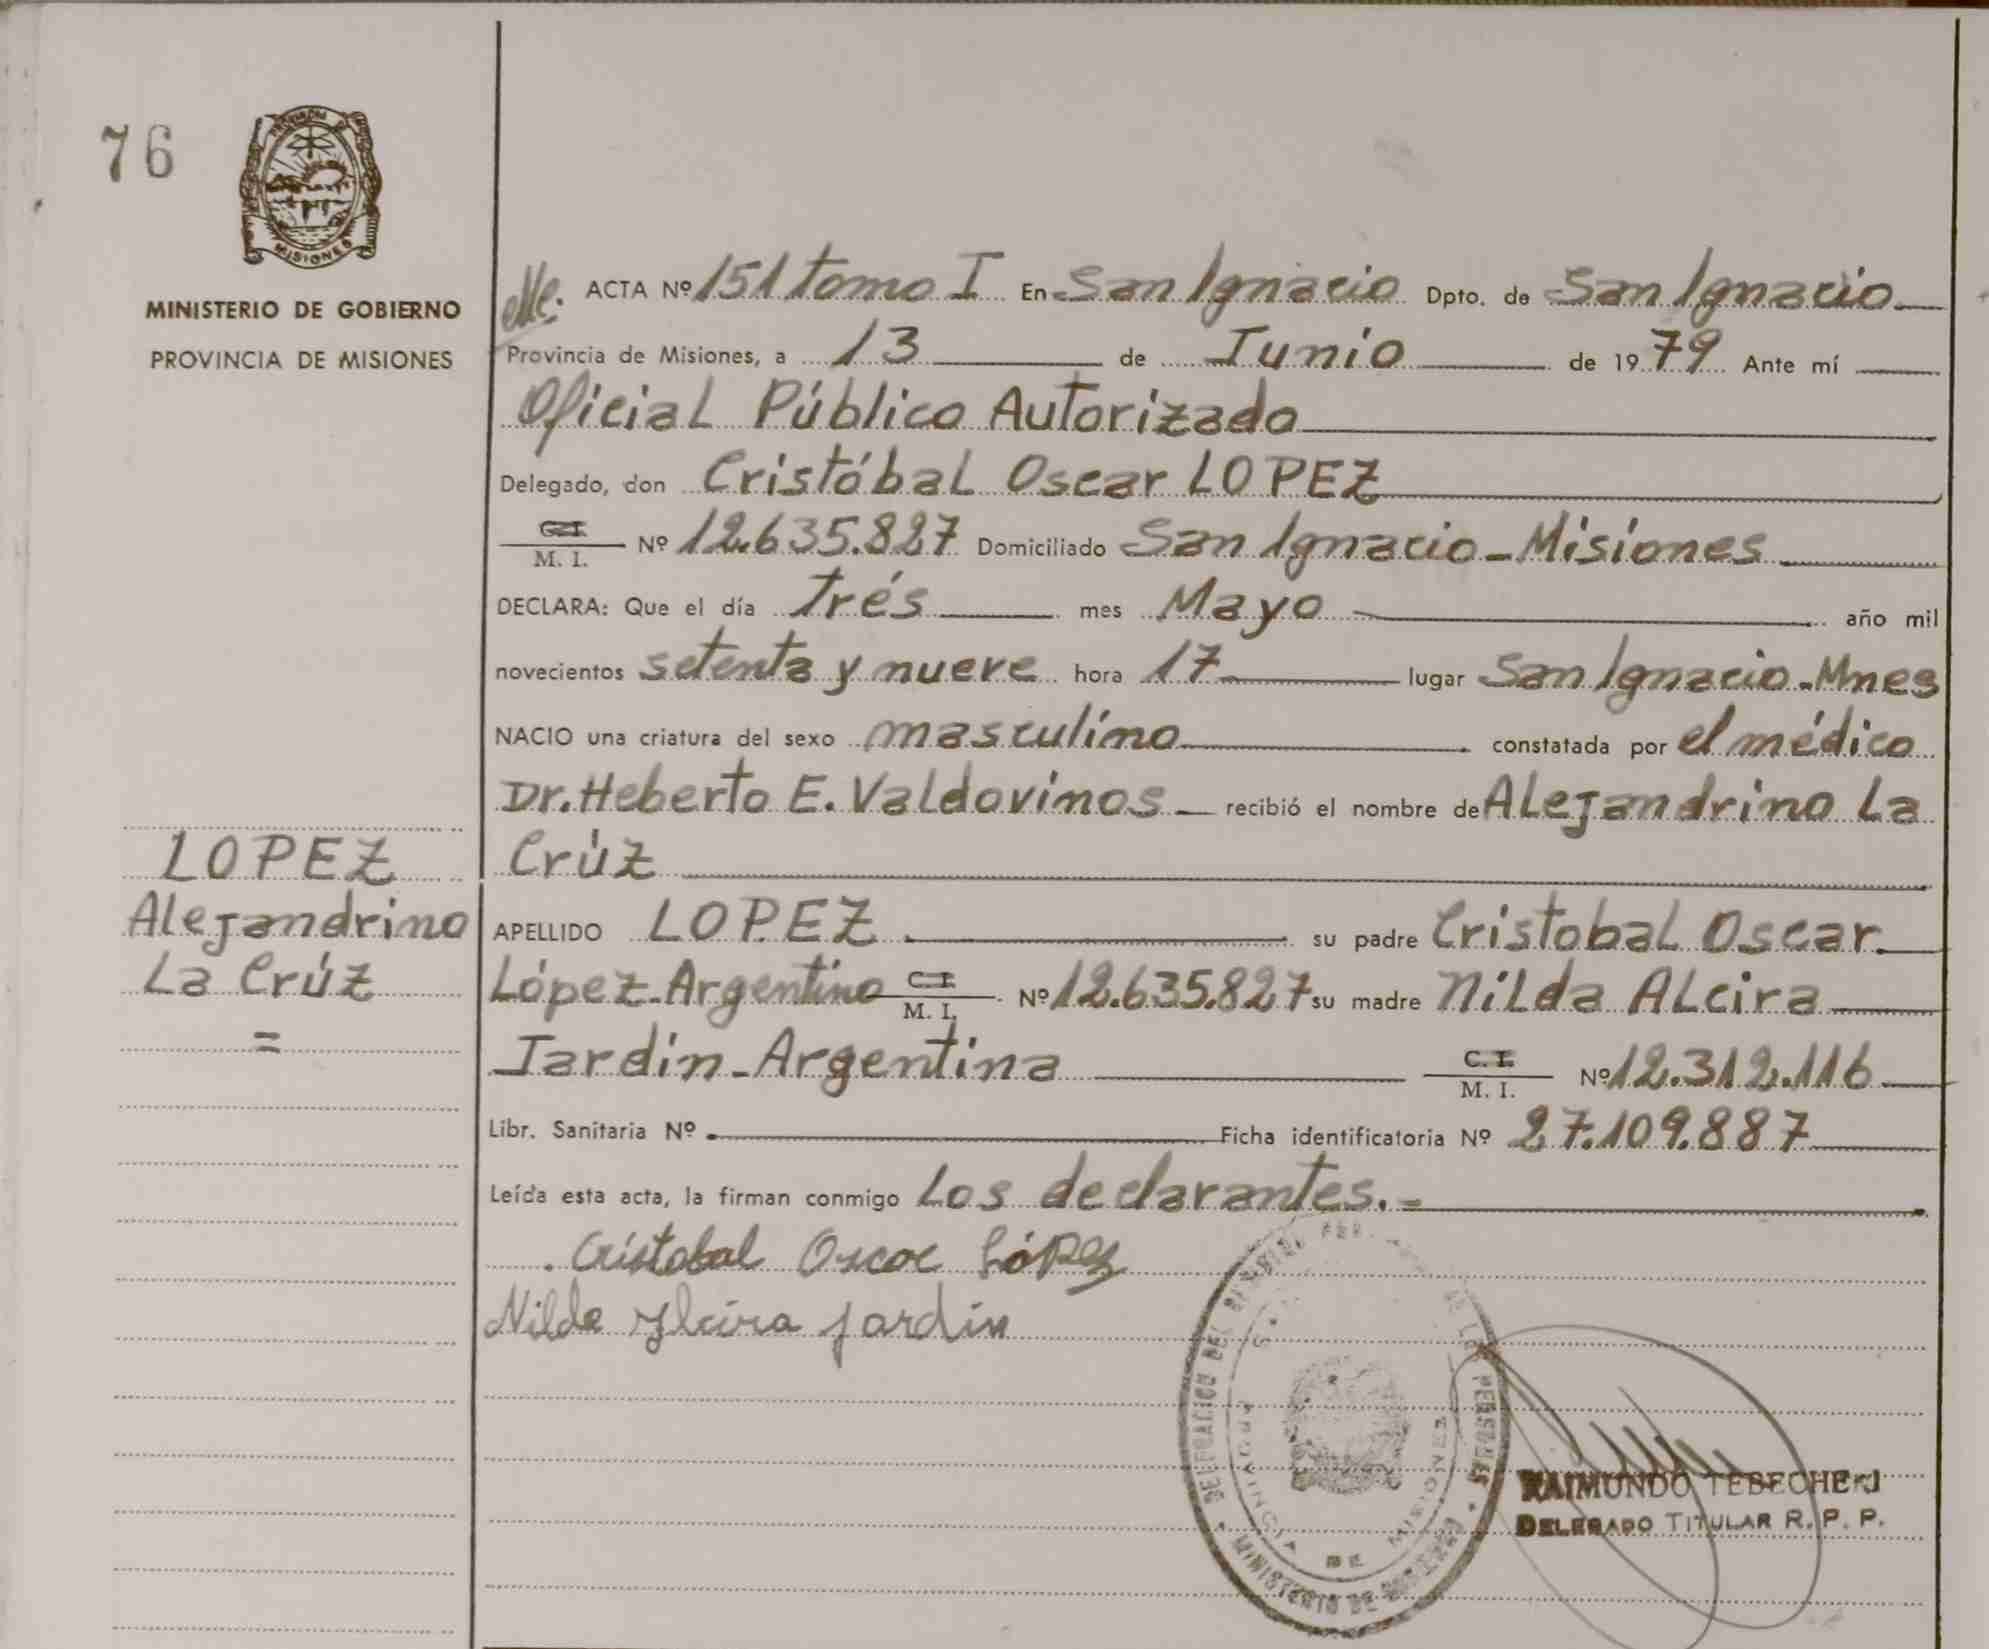 76
MISIONES
MINISTERIO DE GOBIERNO
PROVINCIA DE MISIONES
LOPEZ
Alejandrino
La Crúz
=
ACTA Nº 151 tomo I En San Ignacio Dpto. de San Ignacio
Provincia de Misiones, a 13 de Junio de 1979 Ante mí
Oficial Público Autorizado
Delegado, don Cristóbal Oscar LOPEZ
C.I. M. I. Nº 12.635.827 Domiciliado San Ignacio - Misiones
DECLARA: Que el día Trés mes Mayo año mil
novecientos setenta y nueve hora 17 lugar San Ignacio - Mnes
NACIO una criatura del sexo masculino constatada por el médico
Dr. Heberto E. Valdovinos recibió el nombre de Alejandrino La
Crúz
APELLIDO LOPEZ su padre Cristobal Oscar
López - Argentino C.I. M. I. Nº 12.635.827 su madre Nilda Alcira
Jardin - Argentina C. I. M. I. Nº 12.312.116
Libr. Sanitaria Nº Ficha identificatoria Nº 27.109.887
Leída esta acta, la firman conmigo Los declarantes.-
Cristobal Oscar López
Nilda Alcira Jardin
PROVINCIA DE MISIONES
RAIMUNDO TEBECHE J
DELEGADO TITULAR R. P. P.